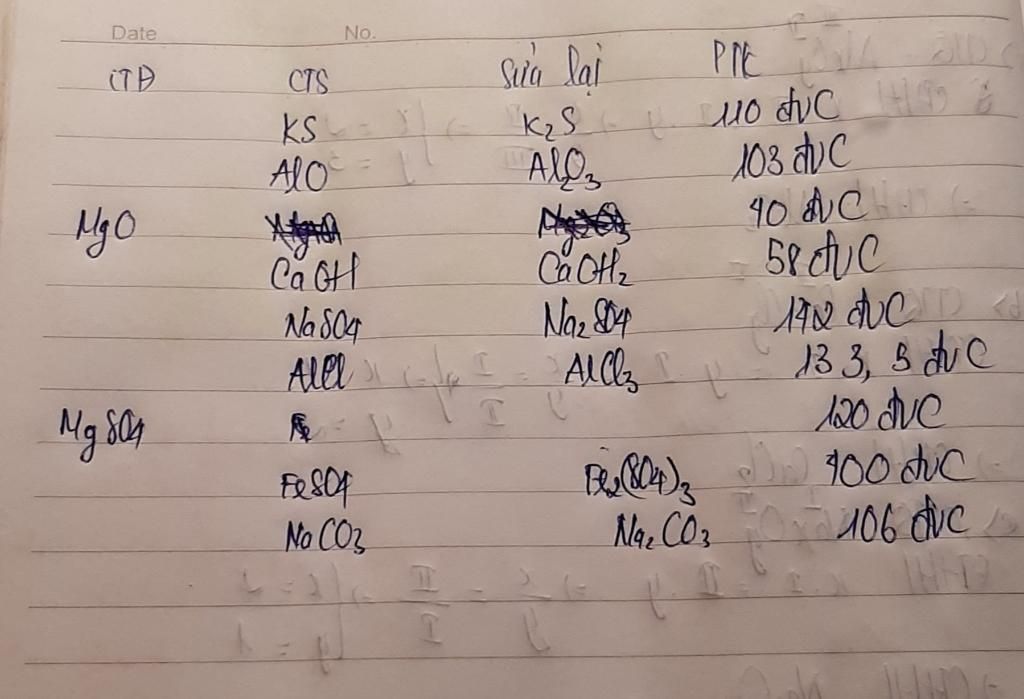 Date No.
CTĐ CTS Sửa lại PTK
KS K₂S 110 đvC
AlO Al₂O₃ 103 đvC
MgO 40 đvC
CaOH CaOH₂ 58 đvC
NaSO4 Na₂SO4 142 đvC
AlCl AlCl₃ 133,5 đvC
MgSO4 120 đvC
FeSO4 Fe₂(SO4)₃ 400 đvC
NaCO₃ Na₂CO₃ 106 đvC